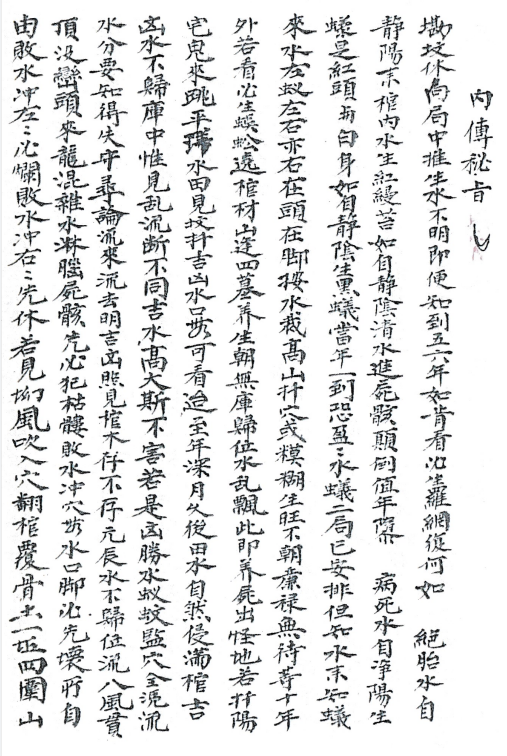 內傳秘旨
墈坟休向局中推生水不明即便知到五六年如肯看必生羅網復何如 絕胎水自
靜陽來棺內水生紅綾苔如自靜陰清水進屍骸顛倒值年際 病死水自淨陽生
蟻是紅頭并白身如自靜陰生黑蟻當年一到恐盈〻水蟻二局已安排但知水來知蟻
來水左蚁左右亦右在頭在脚按水裁高山扦穴或糢糊生旺不朝廉祿無待等十年
外若看必生蜈蚣遶棺材山逢四墓养生朝無庫歸位水乱飄此即养屍出怪地若扦陽
宅鬼來跳平墈水田見坟扦吉凶水口要可看迨至年深月久後田水自然侵满棺吉
凶水不歸庫中惟見乱流断不同吉水高大斯不害若是凶勝水蚁蚊監穴全凴流
水分要知得失守尋論流來流去明吉凶照見棺木存不存元辰水不歸位流八風貫
頂没巒頭來龍混雜水淋腦屍骸先必犯枯髏敗水冲穴要水口脚必先壞所自
由敗水冲左〻必爛敗水冲右〻先休若見坳風吹入穴翻棺覆骨土一坵四圍山